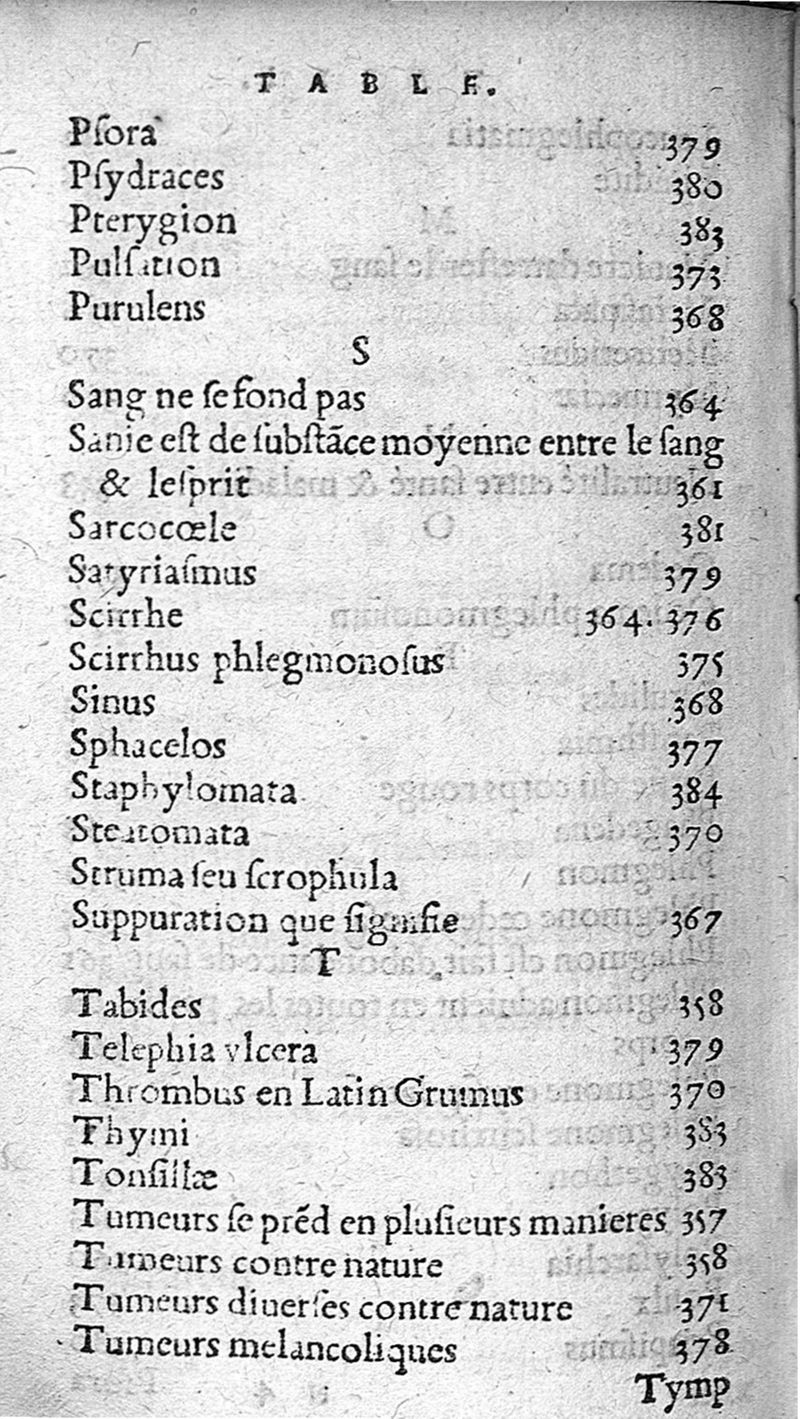 TABLE.
Pſora 379
Pſydraces 380
Pterygion 383
Pulſation 373
Purulens 368
S
Sang ne ſe fond pas 364
Sanie eſt de ſubſtãce moyenne entre le ſang
& leſprit 361
Sarcocœle 381
Satyriaſmus 379
Scirrhe 364. 376
Scirrhus phlegmonoſus 375
Sinus 368
Sphacelos 377
Staphylomata 384
Steatomata 370
Struma ſeu ſcrophula
Suppuration que ſignifie 367
T
Tabides 358
Telephia vlcera 379
Thrombus en Latin Grumus 370
Thymi 383
Tonſillæ 383
Tumeurs ſe prẽd en pluſieurs manieres 357
Tumeurs contre nature 358
Tumeurs diuerſes contre nature 371
Tumeurs melancoliques 378
Tymp